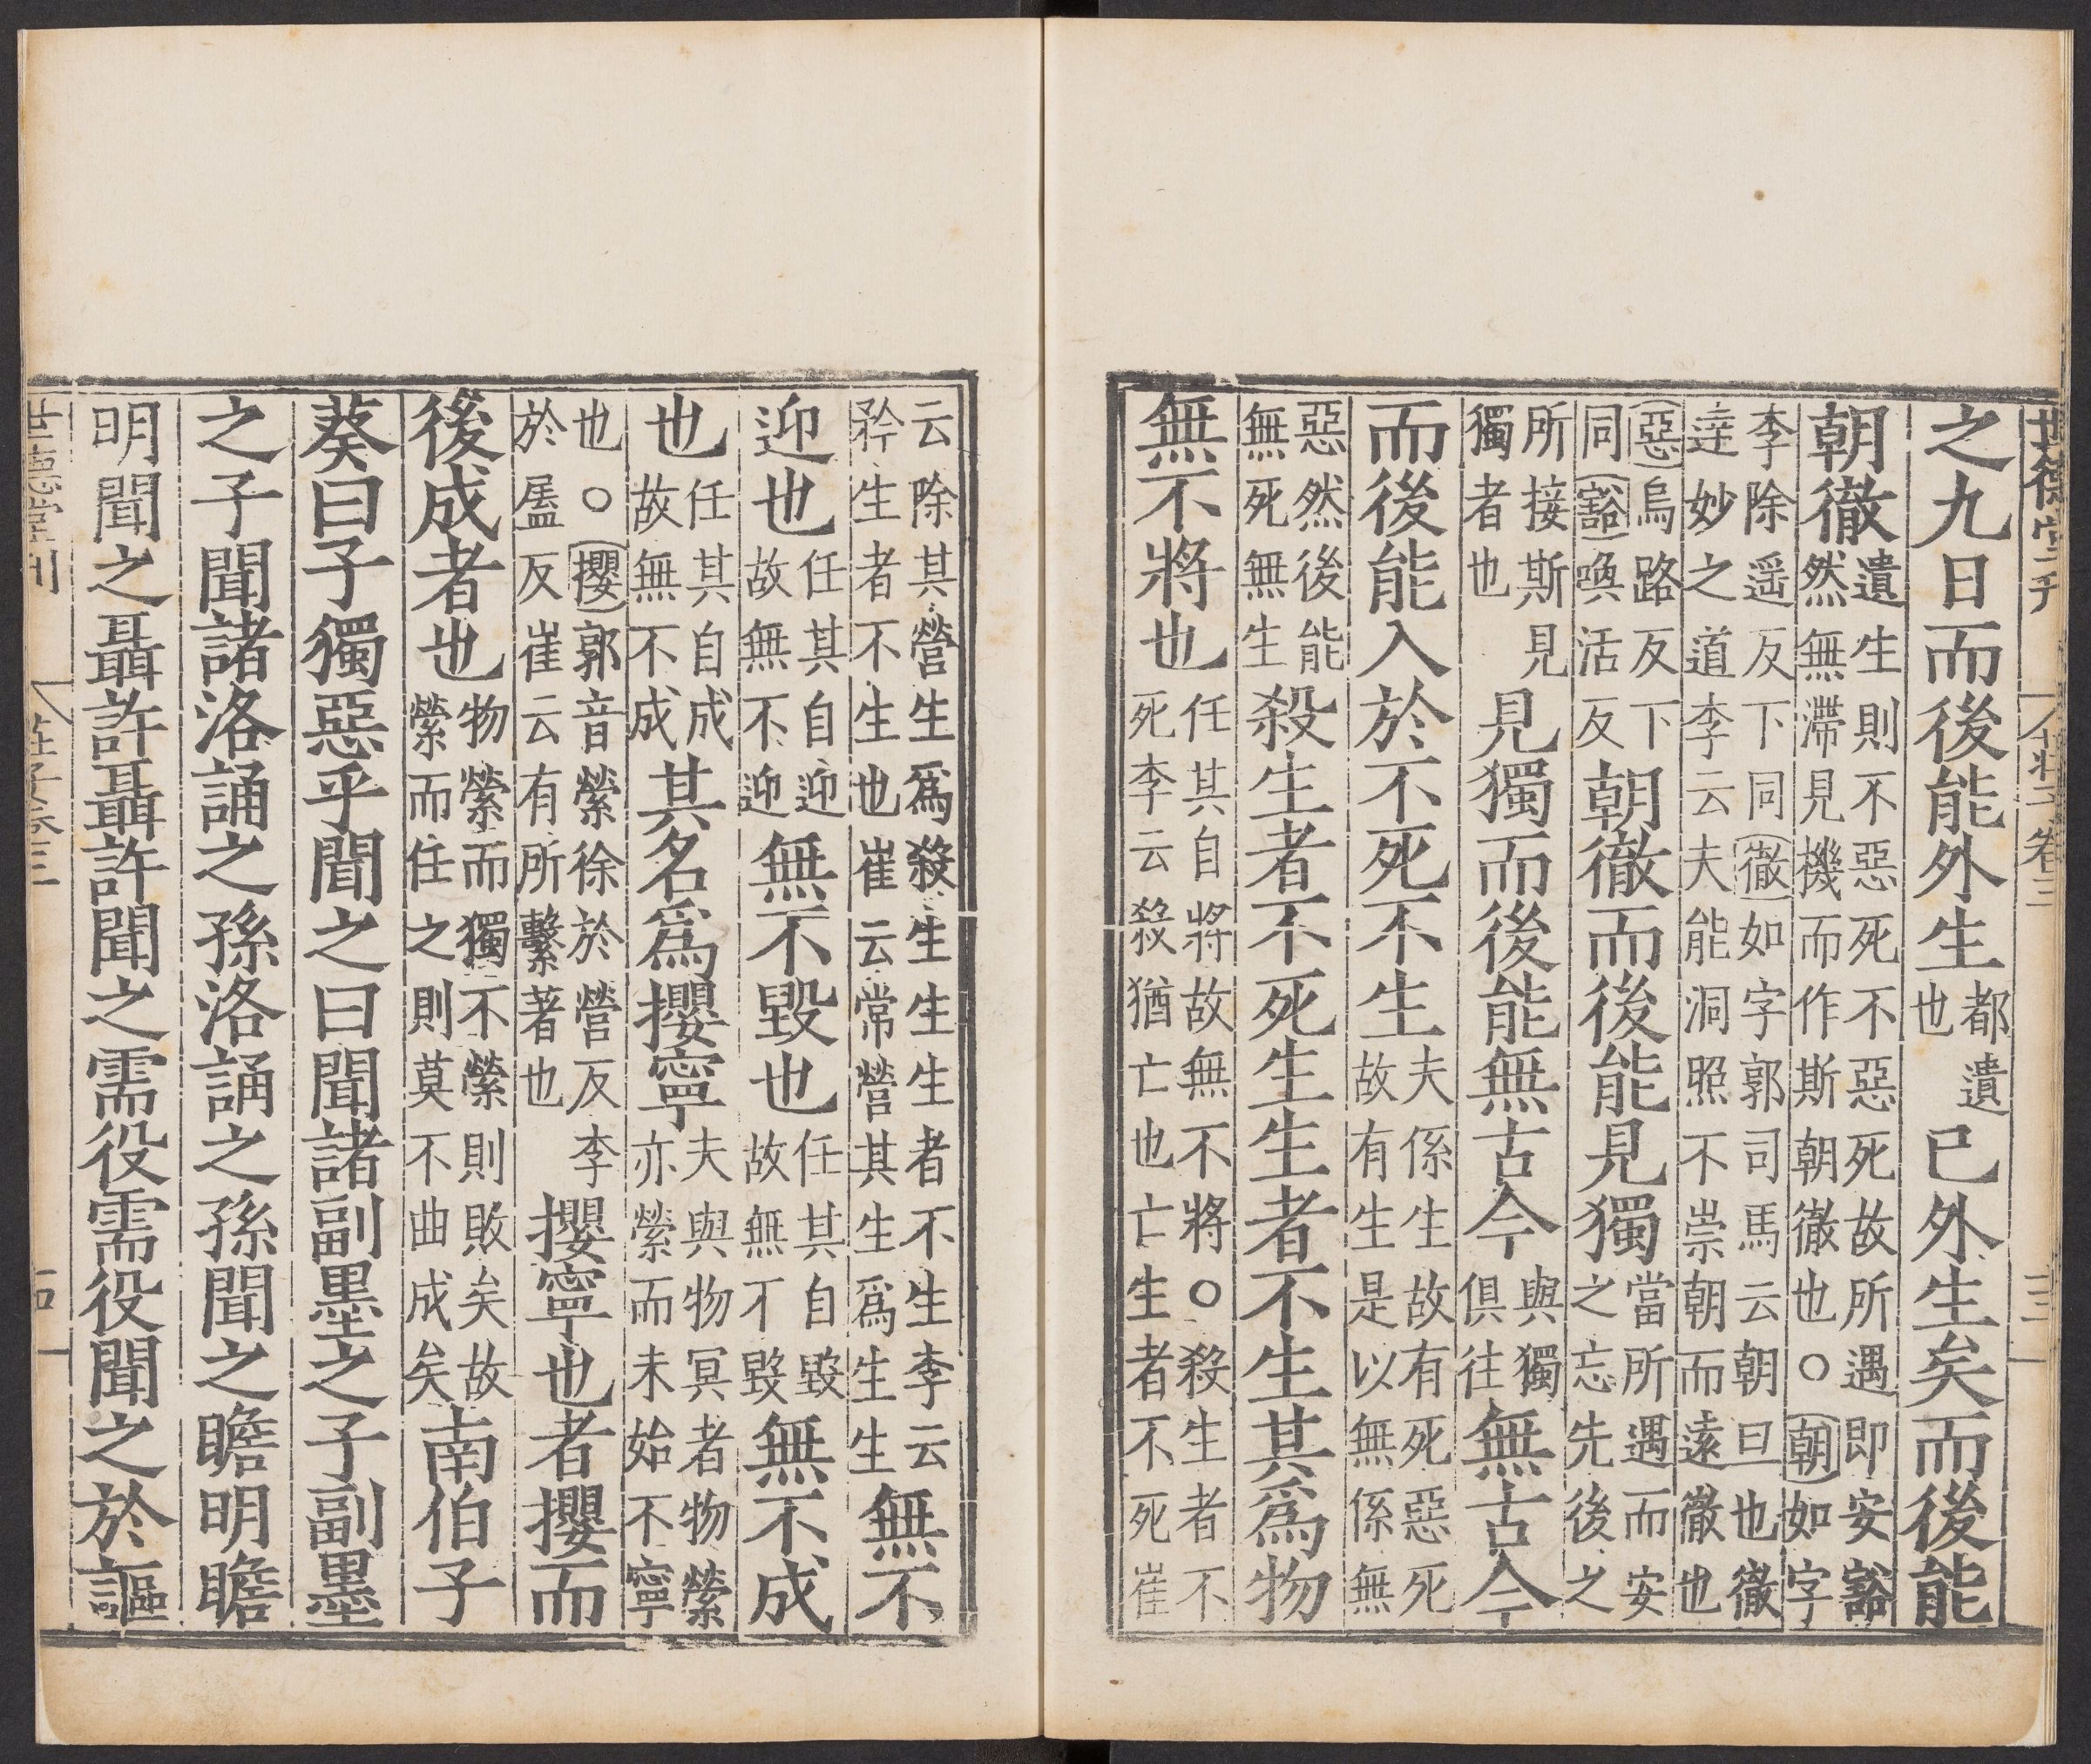 世德堂刊 莊子卷三 十三
之九日而後能外生都遺也已外生矣而後能
朝徹遺生則不惡死不惡死故所遇即安豁然無滯見機而作斯朝徹也○朝如字
李除遥反下同徹如字郭司馬云朝旦也徹達妙之道李云夫能洞照不崇朝而遠徹也
惡烏路反下同豁喚活反朝徹而後能見獨當所遇而安之忘先後之
所接斯見獨者也見獨而後能無古今與獨俱往無古今
而後能入於不死不生夫係生故有死惡死故有生是以無係無
惡然後能無死無生殺生者不死生生者不生其爲物
無不將也任其自將故無不將○殺生者不死李云殺猶亡也亡生者不死崔
云除其營生爲殺生生生者不生李云矜生者不生生也崔云常營其生爲生生無不
迎也任其自迎故無不迎無不毀也任其自毀故無不毀無不成
也任其自成故無不成其名爲攖寧夫與物冥者物縈亦縈而未始不寧
也○攖郭音縈徐於營反李於反崔云有所繫著也攖寧也者攖而
後成者也物縈而獨不縈則敗矣故縈而任之則莫不曲成矣南伯子
葵曰子獨惡乎聞之曰聞諸副墨之子副墨
之子聞諸洛誦之孫洛誦之孫聞之瞻明瞻
明聞之聶許聶許聞之需役需役聞之於謳
世德堂刊 莊子卷三 十四